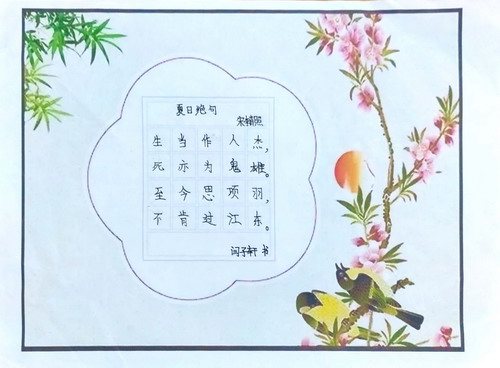 夏日绝句
生当作人杰，
死亦为鬼雄。
至今思项羽，
不肯过江东。
子轩 书